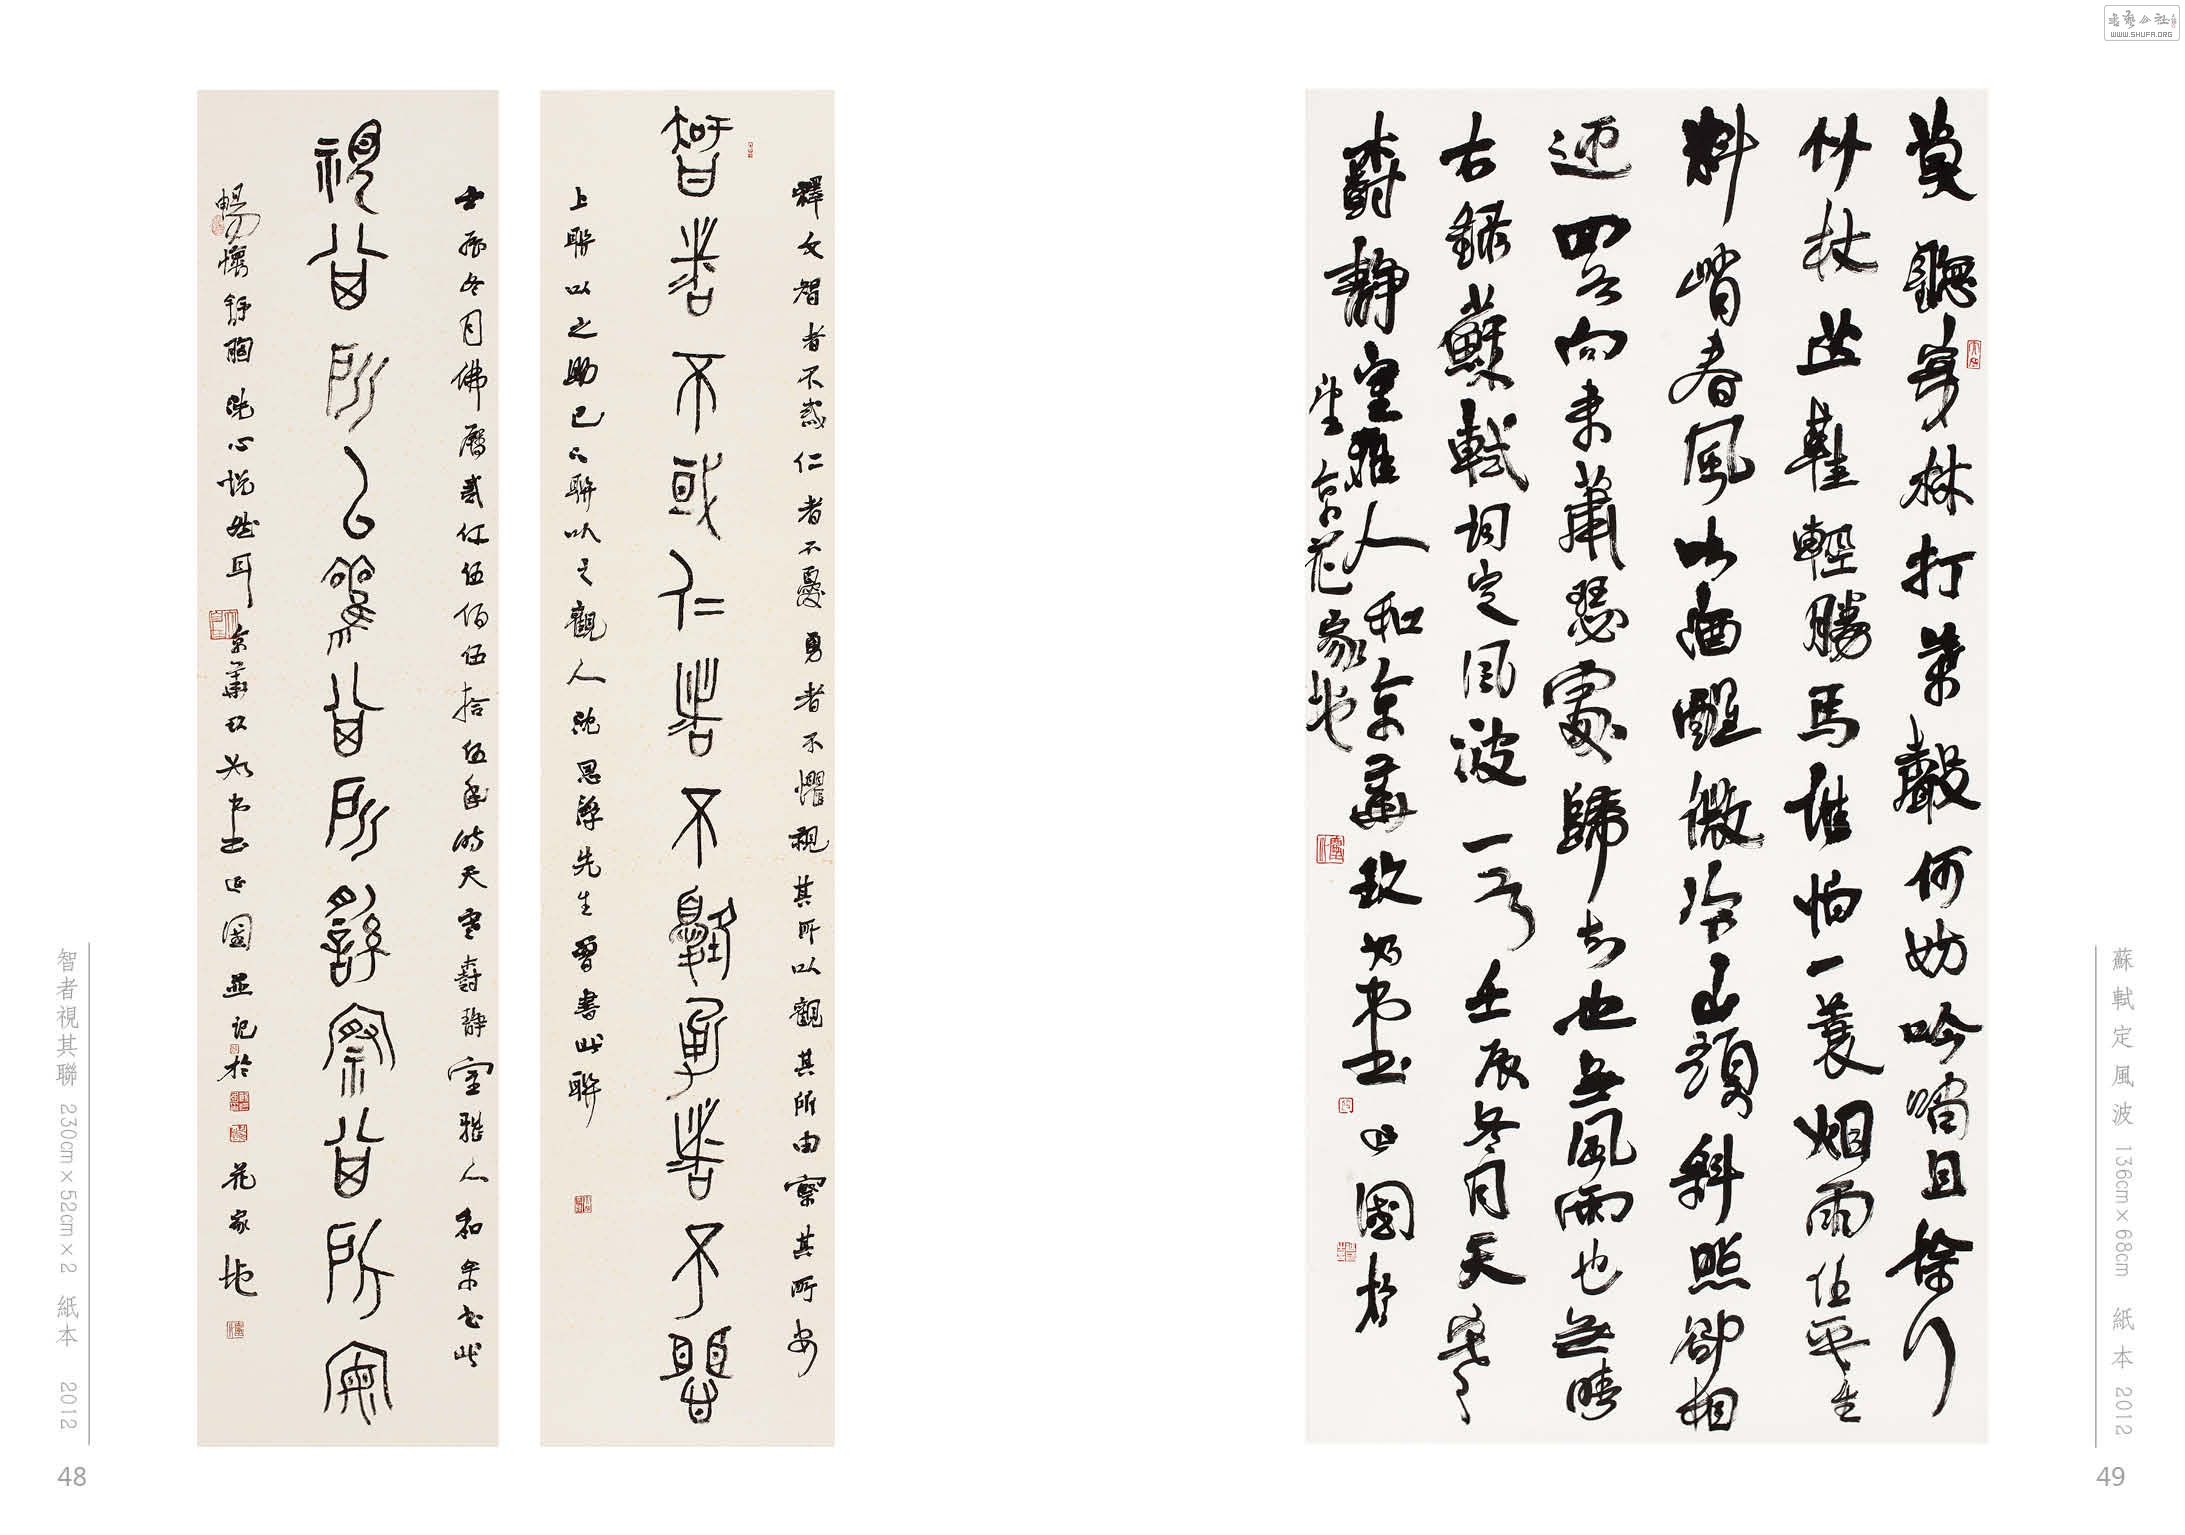 莫聽穿林打葉聲何妨吟嘯且徐行
竹杖芒鞋輕勝馬誰怕一蓑烟雨任平生
料峭春風吹酒醒微冷山頭斜照卻相
迎回首向來蕭瑟處歸去也無風雨也無晴
右錄蘇軾詞定風波一首壬辰冬月天寒
靜室雅人和京華
京花家地
蘇軾定風波 136cm×68cm 紙本 2012
49
釋文智者不惑仁者不憂勇者不懼視其所以觀其所由察其所安
智者不或仁者不憂勇者不懼
上聯以之助己下聯以之觀人沈思海先生曾書此聯
壬辰冬月佛曆貳仟伍佰伍拾伍年時天寒靜室雅人和余書此
視其所以觀其所察其所安
暢懷舒胸洗心悅然耳京華書於花家地
智者視其聯 230cm×52cm×2 紙本 2012
48
WWW.SHUFA.ORG